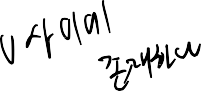 U 사이에
존재하다